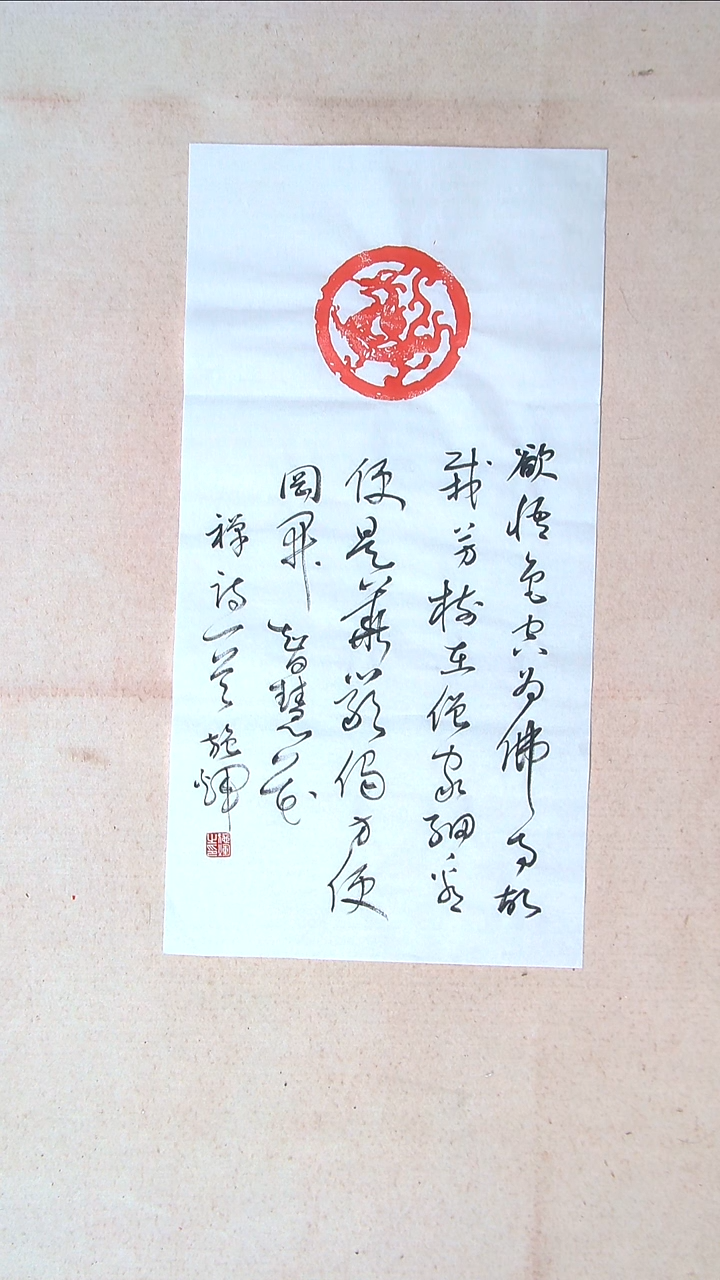 欲悟色空为佛事故
栽芳树在僧家细看
便是华严偈方便
风开智慧花
禅诗一首 施辉